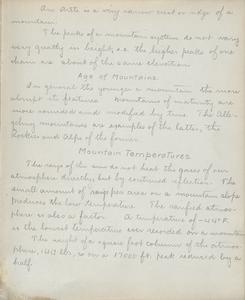 An arête is a very narrow crest or ridge of a
mountain.
The peaks of a mountain system do not vary
very greatly in height, i.e. the higher peaks of one
chain are about of the same elevation.
Age of Mountains
In general the younger a mountain the more
abrupt its features. Mountains of maturity are
more rounded and modified by time. The Alle-
gheny mountains are examples of the latter, the
Rockies and Alps of the former.
Mountain Temperatures
The rays of the sun do not heat the gases of our
atmosphere directly but by continued reflection. The
small amount of rays per area on a mountain slope
produces the low temperature. The rarified atmos-
phere is also a factor. A temperature of -44°F.
is the lowest temperature ever recorded on a mountain
The weight of a square foot column of the atmos-
phere, is on a 17000 ft. peak reduced by a
half.